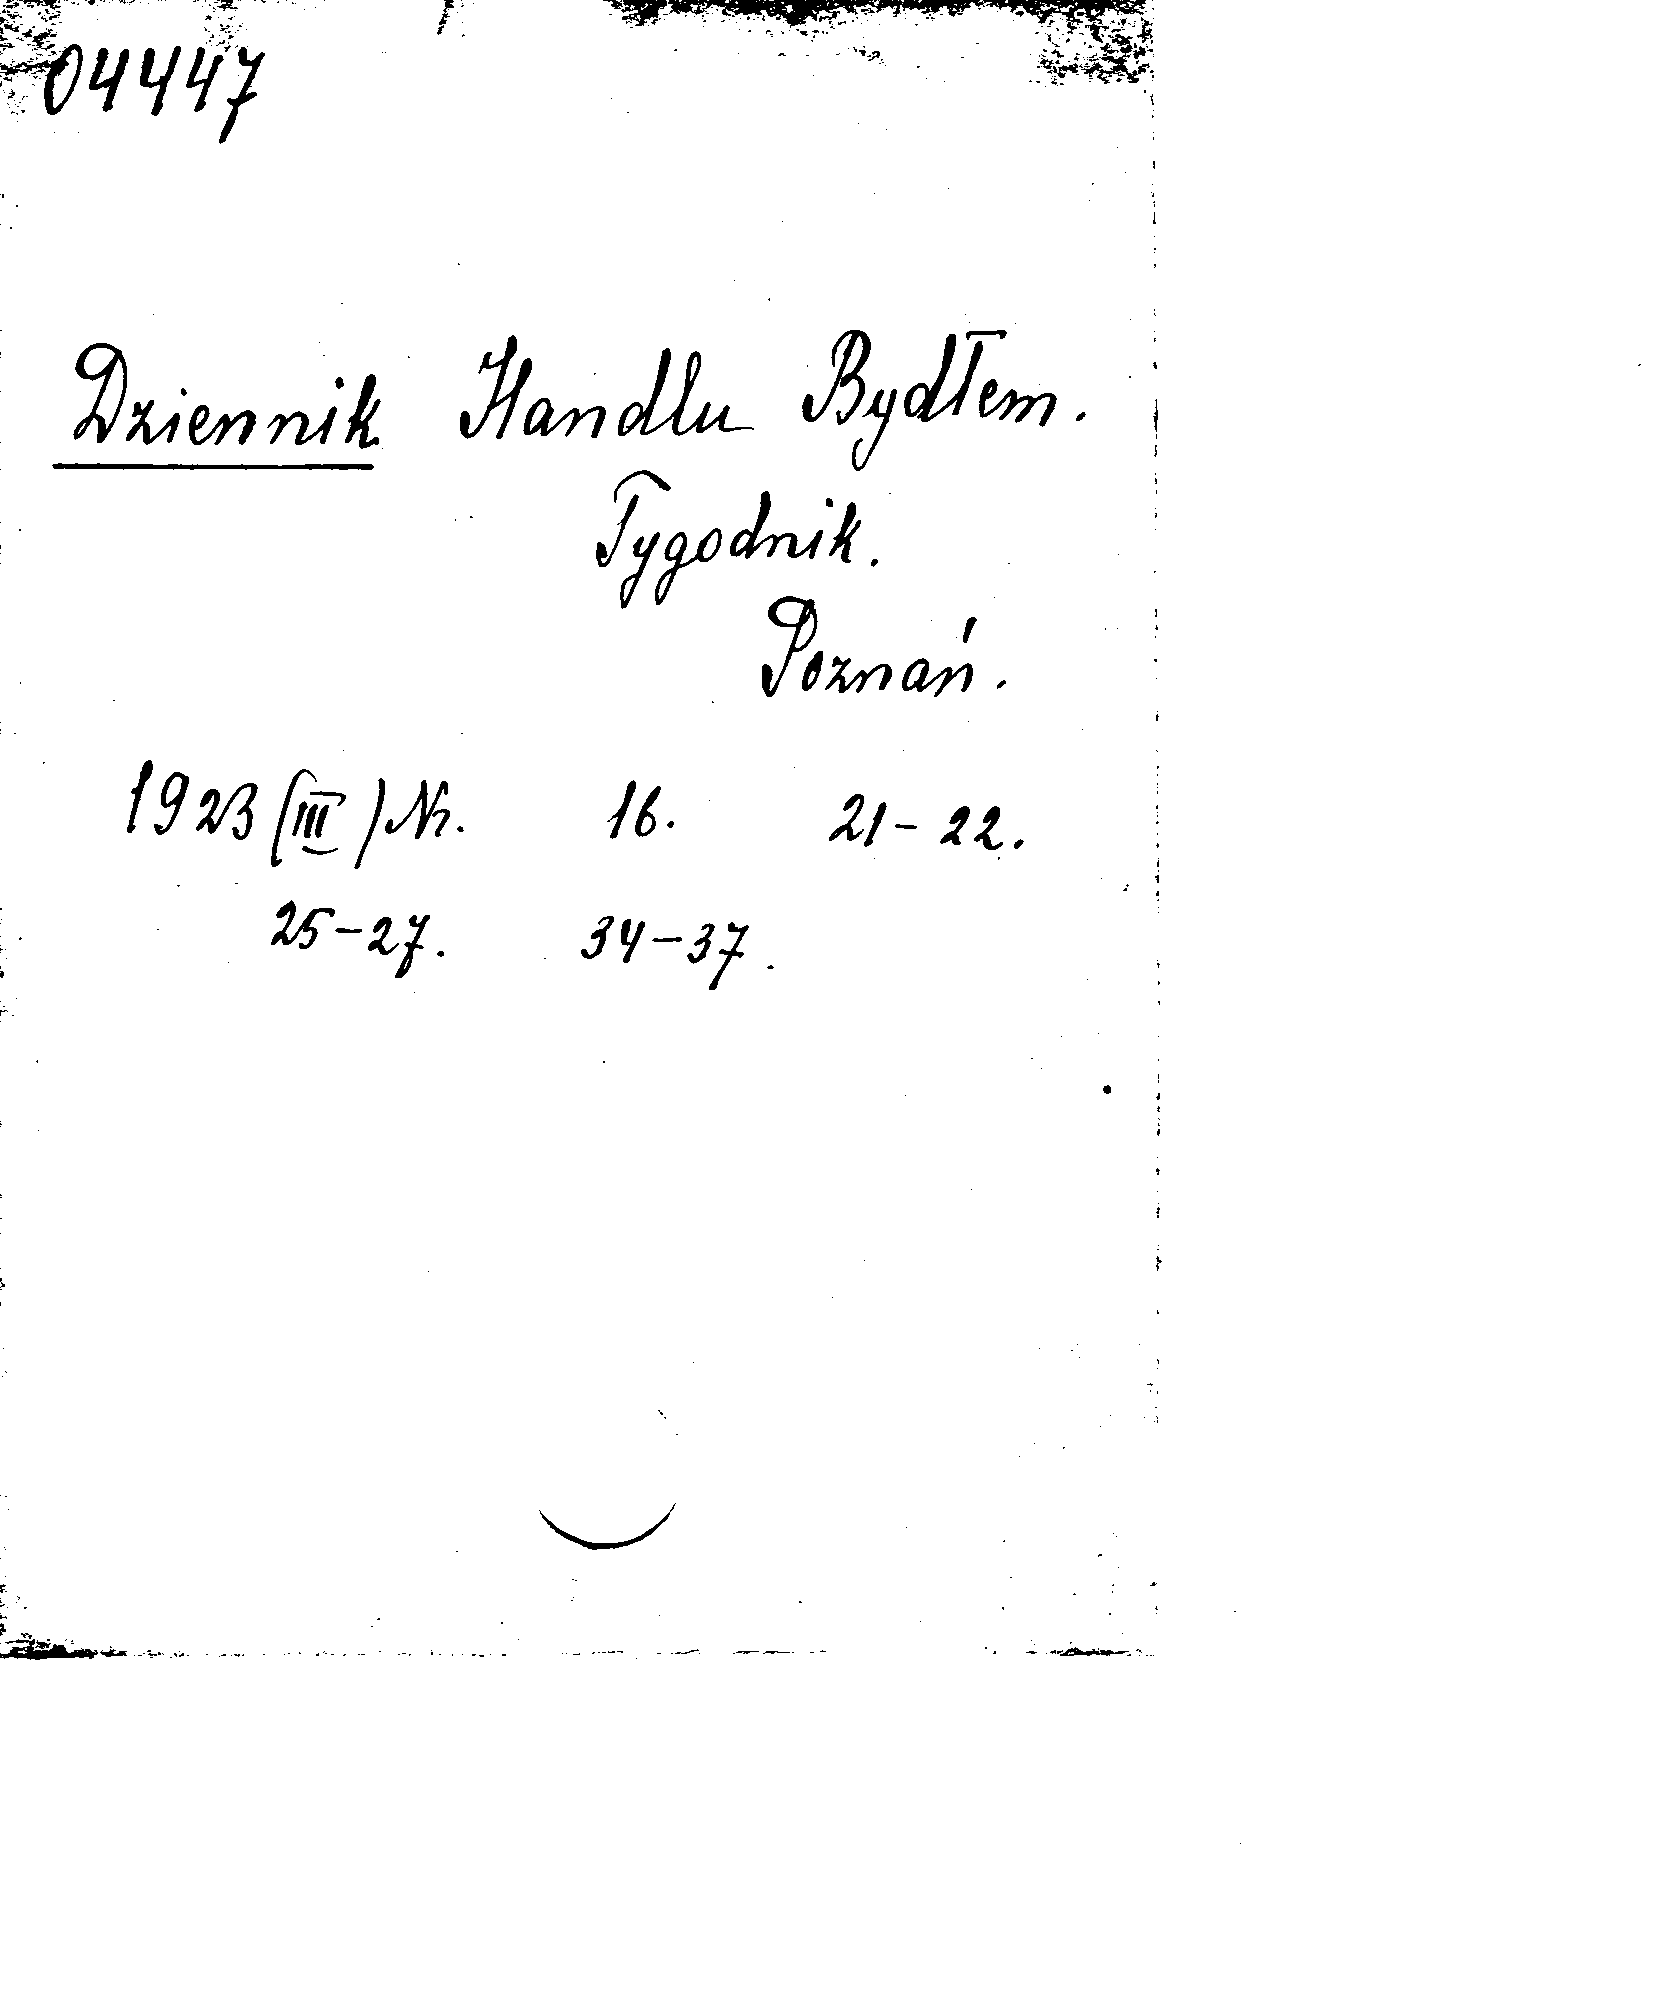 04447
Dziennik Handlu Bydłem.
Tygodnik.
Poznań.
1923 (III) Nr. 16. 21-22.
25-27. 34-37.